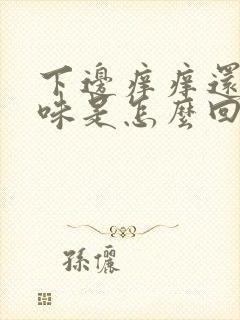 下邊痒痒還
味是怎麼回
孫儷